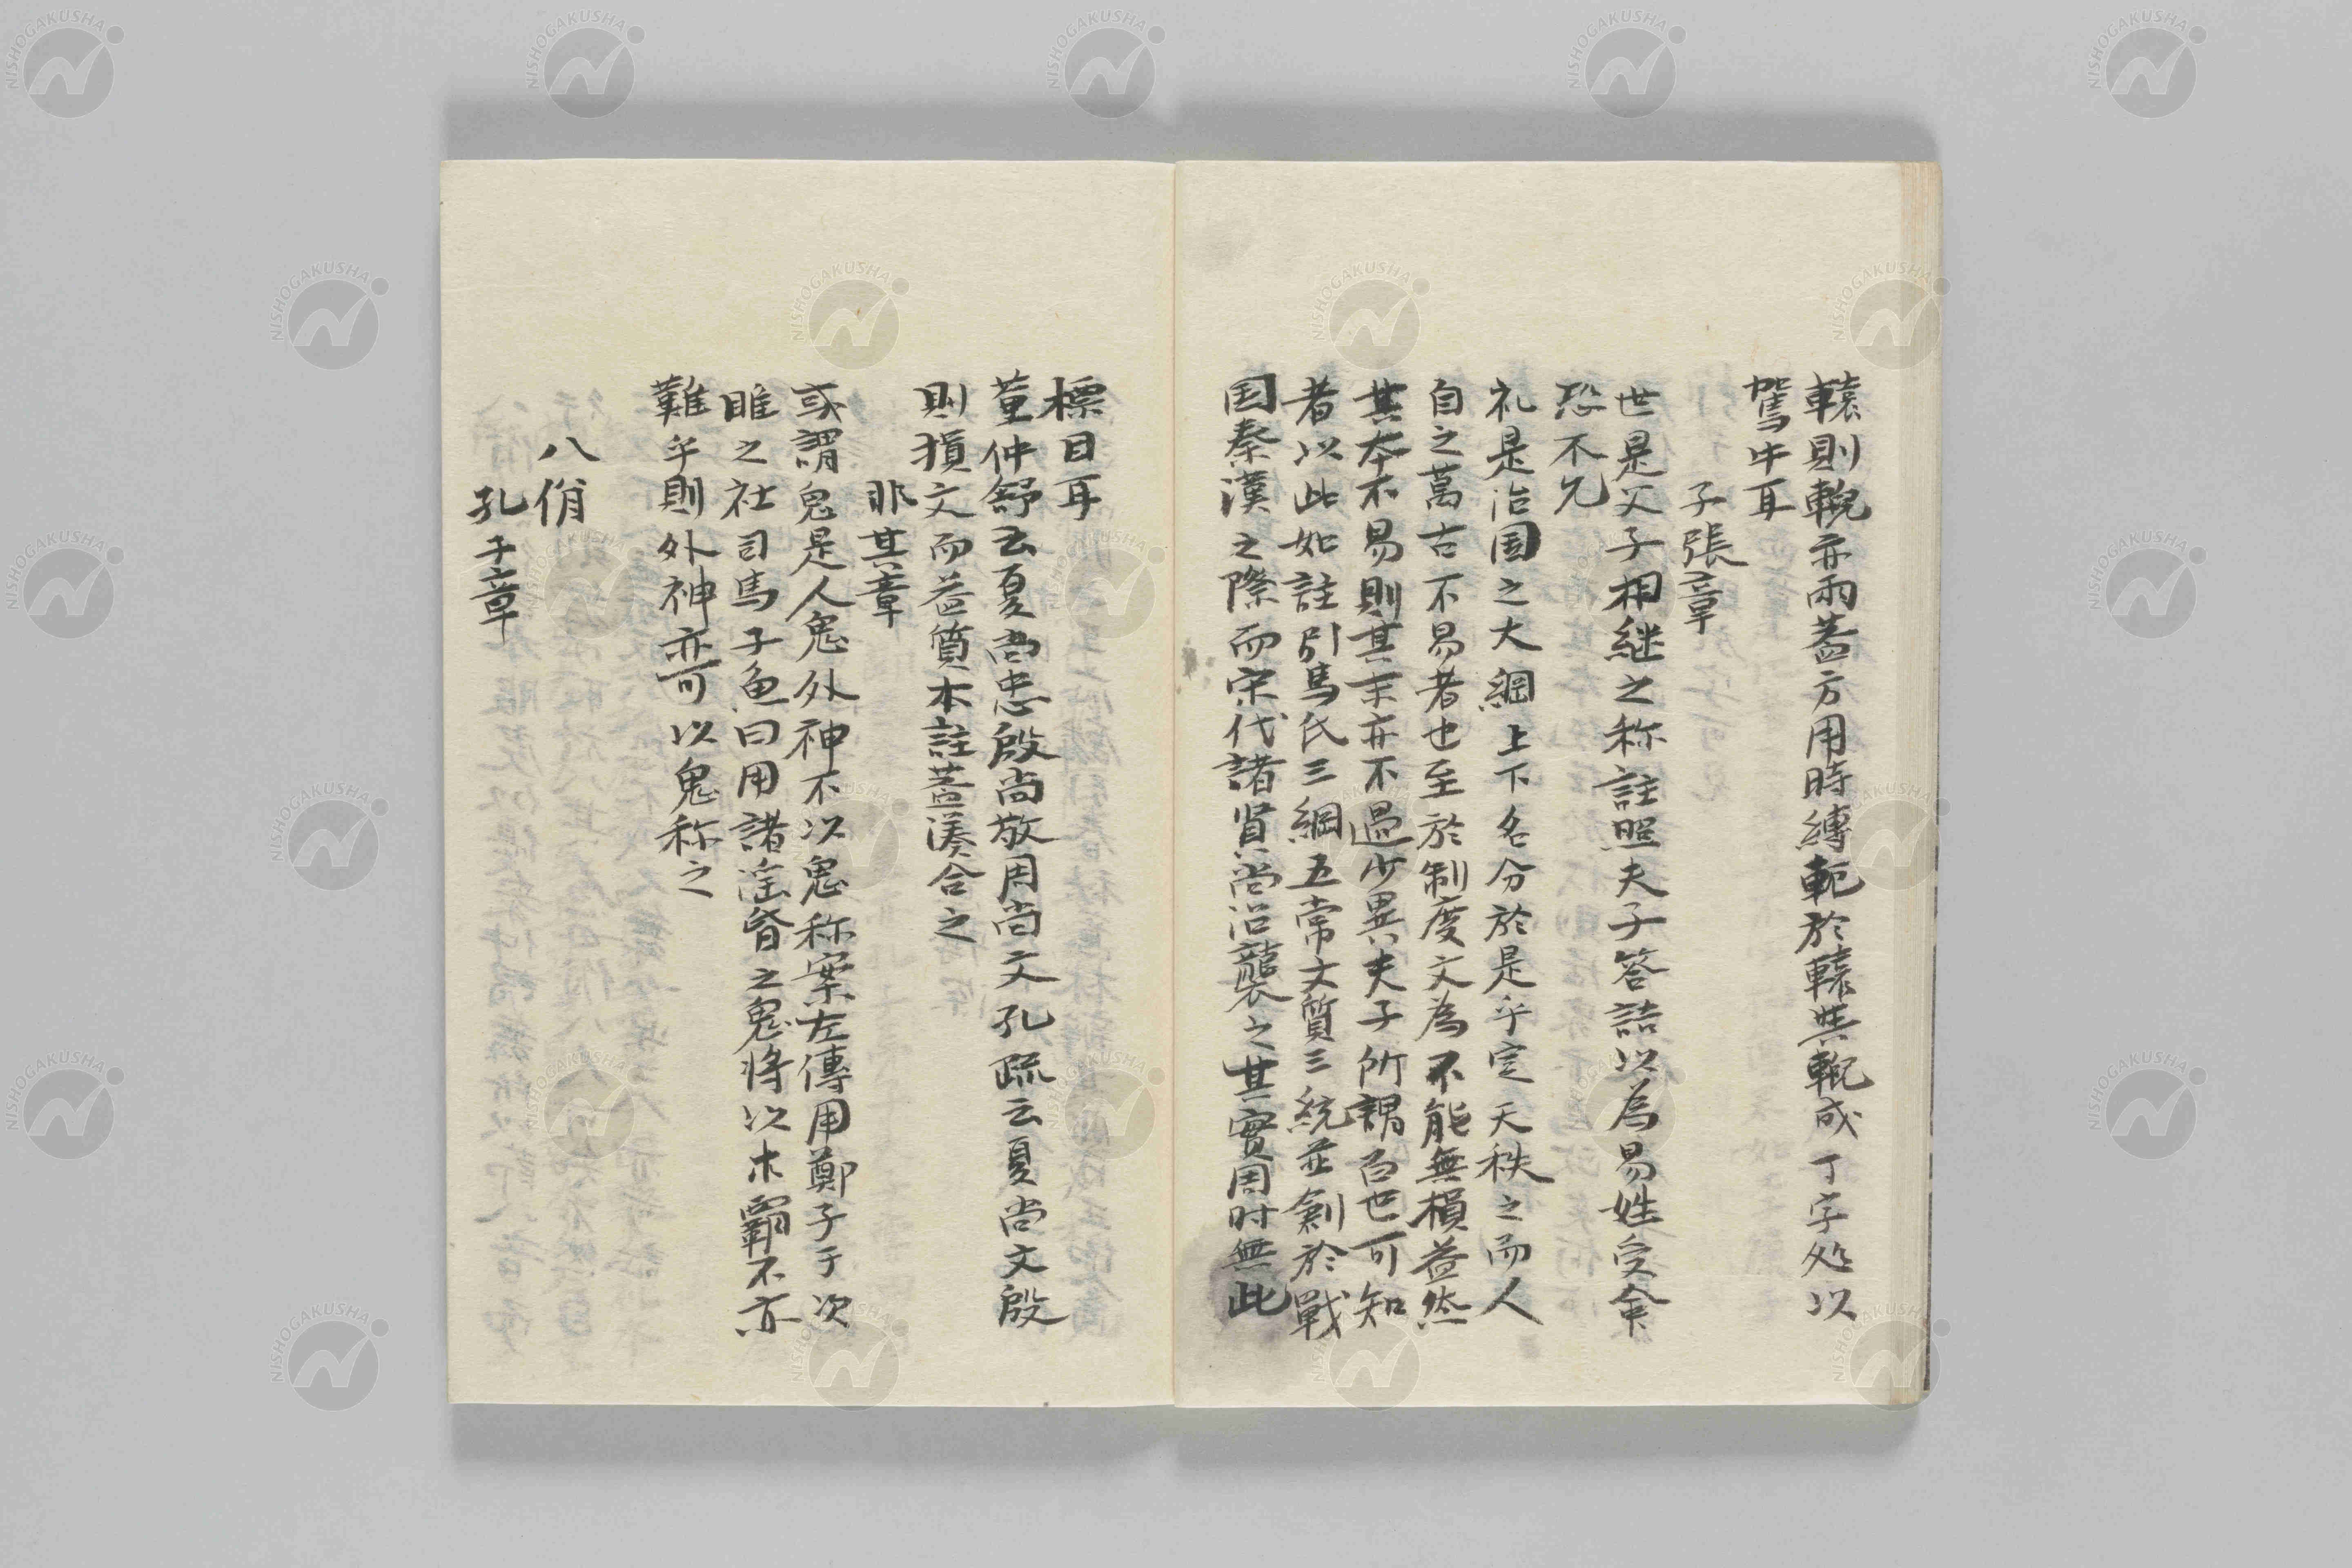 轅則輗亦兩蓋方用時縛軛於轅與輗成丁字処以
駕牛耳
子張章
世是父子相継之称註照夫子答詰以為易姓受命
恐不允
礼是治国之大綱上下名分於是乎定天秩之而人
自之萬古不易者也至於制度文為不能無損益然
其本不易則其末亦不過少異夫子所謂百世可知
者以此如註引馬氏三綱五常文質三統並創於戦
国秦漢之際而宋代諸賢尚沿襲之其實周时無此
標目耳
董仲舒云夏尚忠殷尚敬周尚文孔疏云夏尚文殷
則損文而益質本註蓋湊合之
非其章
或謂鬼是人鬼外神不以鬼称案左傳用鄭子于次
睢之社司馬子魚曰用諸淫昏之鬼将以求覇不亦
難乎則外神亦可以鬼称之
八佾
孔子章
NISHOGAKUSHA